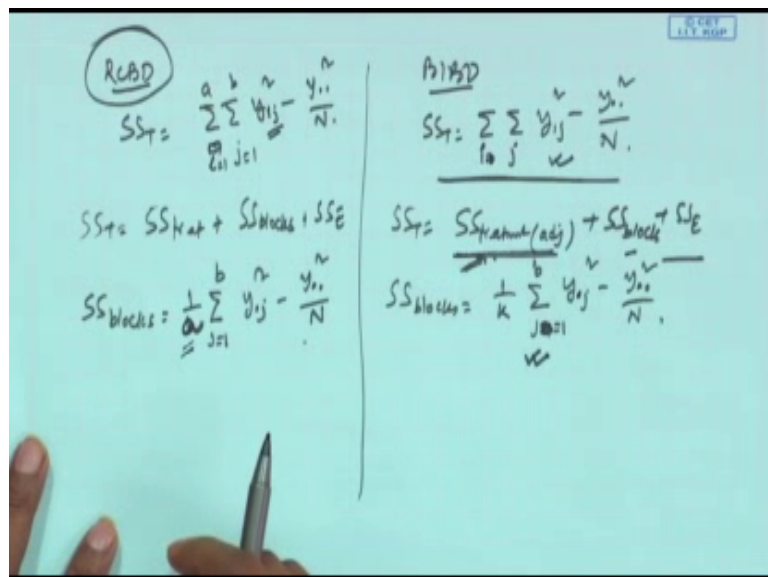 © CET
I.I.T. KGP
RCBD
SS_T = \sum_{i=1}^{a} \sum_{j=1}^{b} y_{ij}^2 - \frac{y_{..}^2}{N}.
SS_T = SS_{treat} + SS_{blocks} + SS_E
SS_{blocks} = \frac{1}{a} \sum_{j=1}^{b} y_{.j}^2 - \frac{y_{..}^2}{N}.
BIBD
SS_T = \sum_i \sum_j y_{ij}^2 - \frac{y_{..}^2}{N}.
SS_T = SS_{treatment(adj)} + SS_{block} + SS_E
SS_{blocks} = \frac{1}{k} \sum_{j=1}^{b} y_{.j}^2 - \frac{y_{..}^2}{N}.